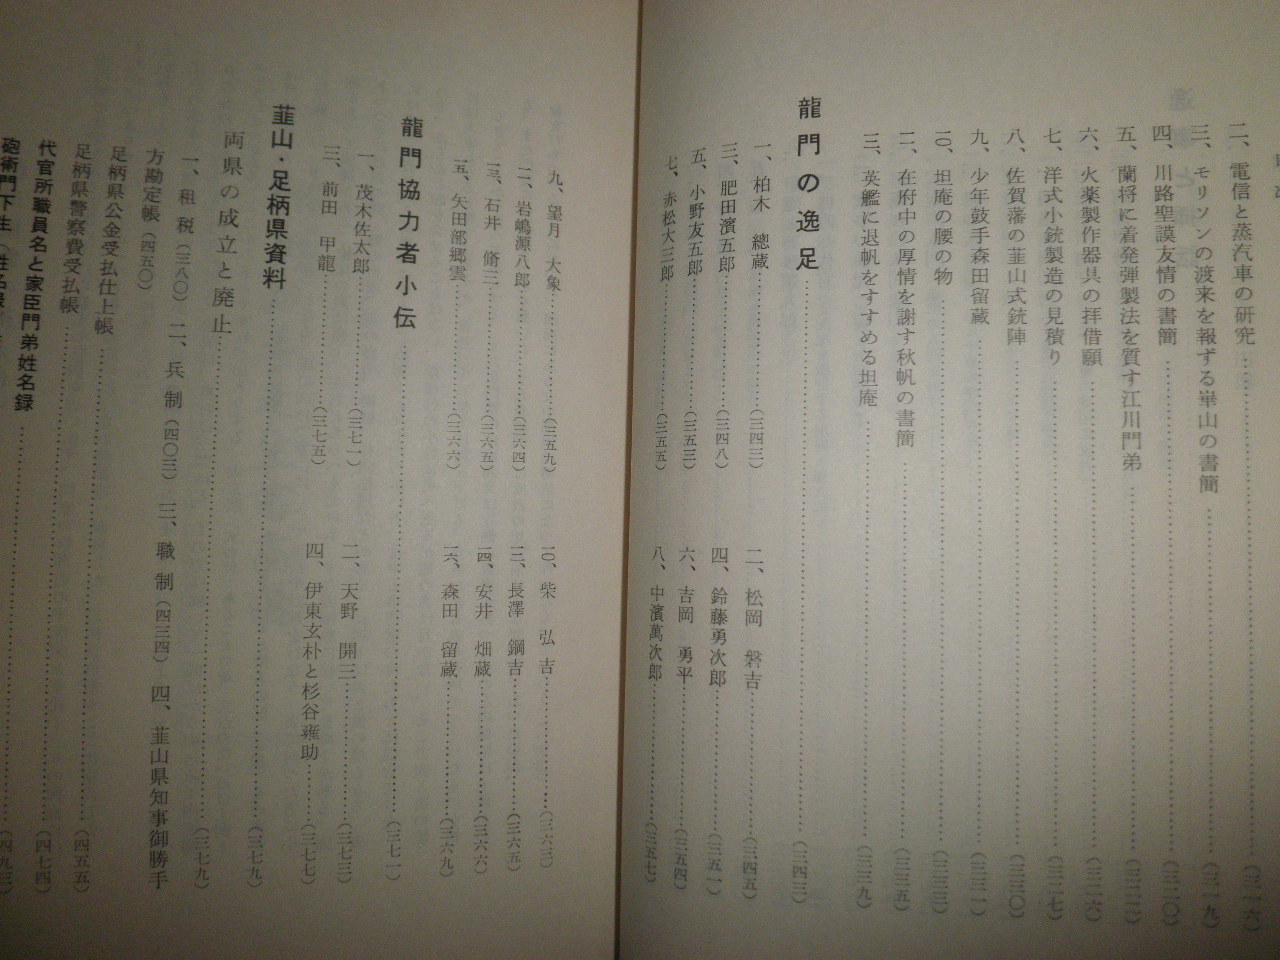 二、電信と蒸汽車の研究……(三一六)
三、モリソンの渡来を報ずる崋山の書簡……(三一九)
四、川路聖謨友情の書簡……(三二〇)
五、蘭将に着発弾製法を質す江川門弟……(三二二)
六、火薬製作器具の拝借願……(三二六)
七、洋式小銃製造の見積り……(三二七)
八、佐賀藩の韮山式銃陣……(三三〇)
九、少年鼓手森田留蔵……(三三一)
一〇、坦庵の腰の物……(三三三)
一一、在府中の厚情を謝す秋帆の書簡……(三三五)
一二、英艦に退帆をすすめる坦庵……(三三九)
龍門の逸足……(三四三)
一、柏木 總蔵……(三四三) 二、松岡 磐吉……(三四五)
三、肥田濱五郎……(三四八) 四、鈴藤勇次郎……(三五一)
五、小野友五郎……(三五三) 六、吉岡 勇平……(三五四)
七、赤松大三郎……(三五五) 八、中濱萬次郎……(三五七)
九、望月 大象……(三五九) 一〇、柴 弘吉……(三六三)
一一、岩嶋源八郎……(三六四) 一二、長澤 鋼吉……(三六五)
一三、石井 脩三……(三六五) 一四、安井 畑蔵……(三六六)
一五、矢田部郷雲……(三六六) 一六、森田 留蔵……(三六九)
龍門協力者小伝……(三七一)
一、茂木佐太郎……(三七一) 二、天野 開三……(三七三)
三、前田 甲龍……(三七五) 四、伊東玄朴と杉谷雍助……(三七七)
韮山・足柄県資料……(三七九)
両県の成立と廃止……(三七九)
一、租 税(三八〇) 二、兵 制(四〇三) 三、職 制(四三四) 四、韮山県知事御勝手
方勘定帳(四五〇)
足柄県公金受払仕上帳
足柄県警察費受払帳……(四五五)
代官所職員名と家臣門弟姓名録……(四七四)
砲術門下生……(四九三)